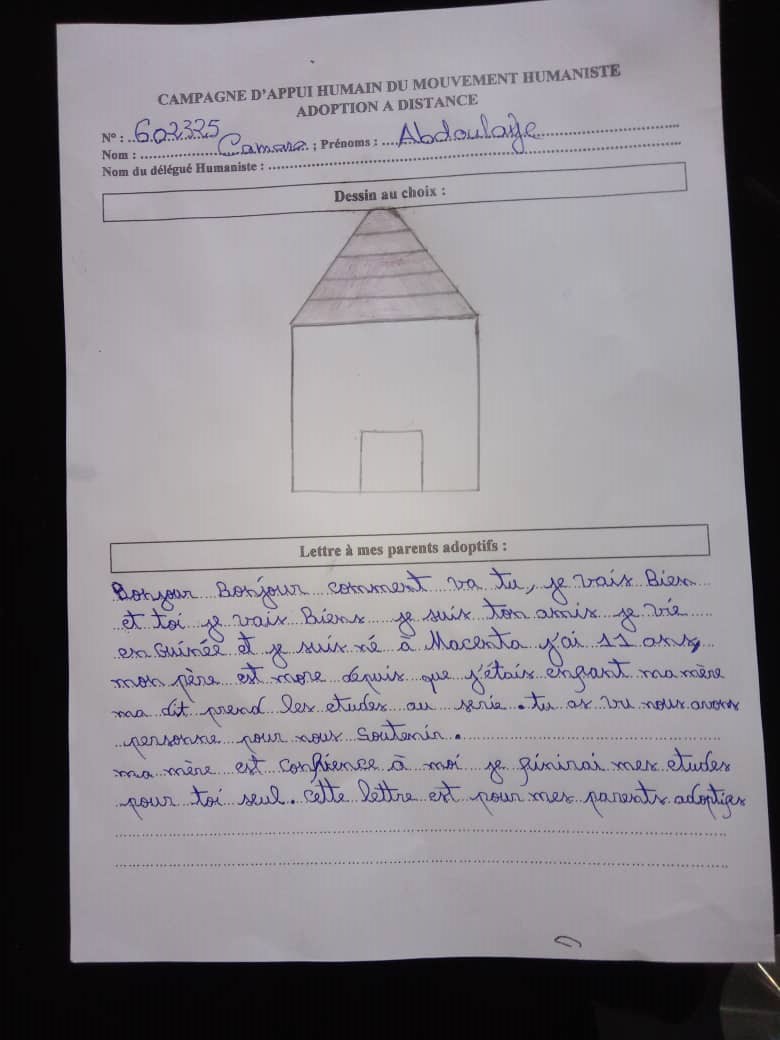 CAMPAGNE D'APPUI HUMAIN DU MOUVEMENT HUMANISTE
ADOPTION A DISTANCE
N° : 602325
Nom : Camara ; Prénoms : Abdoulaye
Nom du délégué Humaniste :
Dessin au choix :
Lettre à mes parents adoptifs :
Bonjour Bonjour comment va tu, je vais Bien
et toi je vais Biens je suis ton amis je vie
en Guinée et je suis né à Macenta j'ai 11 ans,
mon père est more depuis que j'étais enfant ma mère
ma dit prend les etudes au serie. tu as vu nous avons
personne pour nous soutenir.
ma mère est confience à moi je finirai mes etudes
pour toi seul. cette lettre est pour mes parents adoptifes